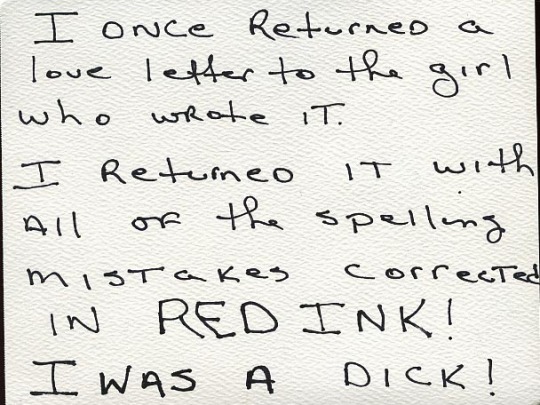 I ONCE Returned a
love letter to the girl
who wrote IT.
I Returned IT with
All of the spelling
mistakes corrected
IN RED INK!
I WAS A DICK!